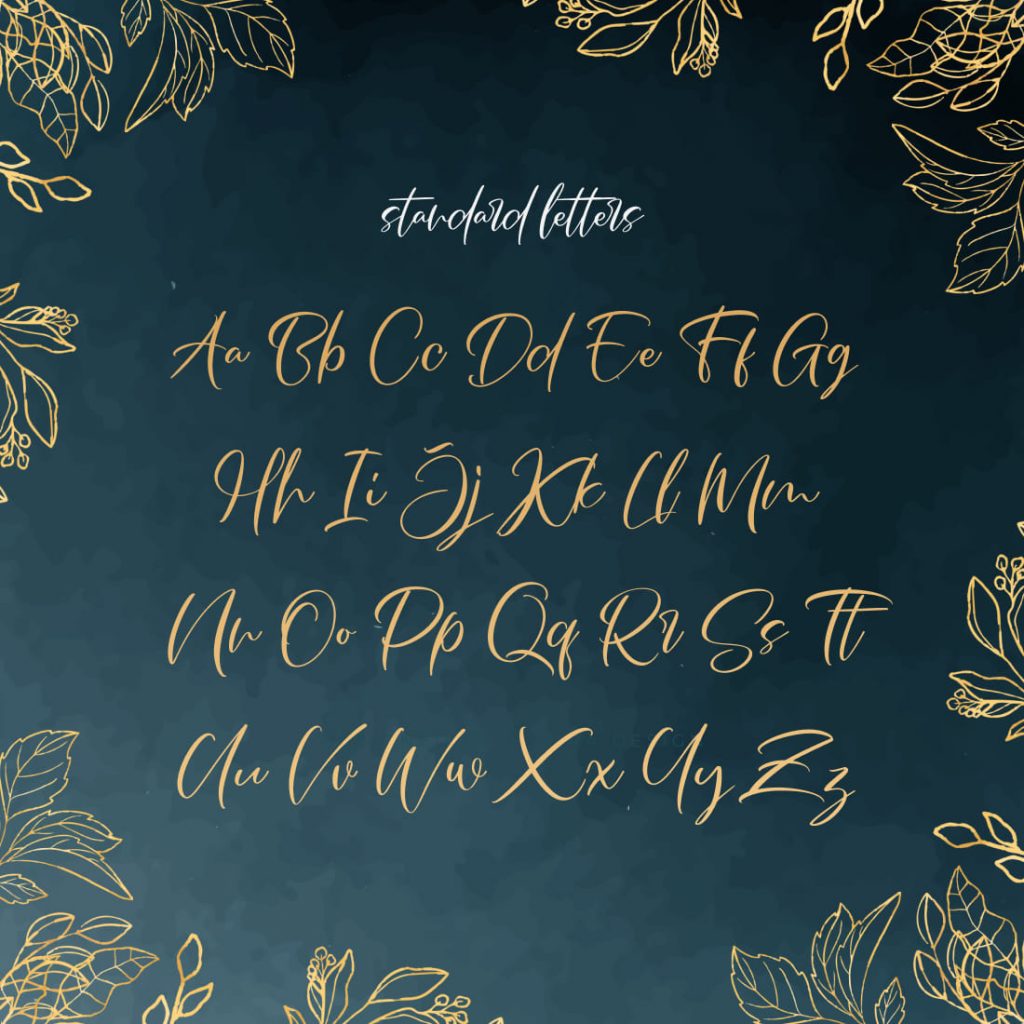 standard letters
Aa Bb Cc Dd Ee Ff Gg
Hh Ii Jj Kk Ll Mm
Nn Oo Pp Qq Rr Ss Tt
Uu Vv Ww Xx Yy Zz